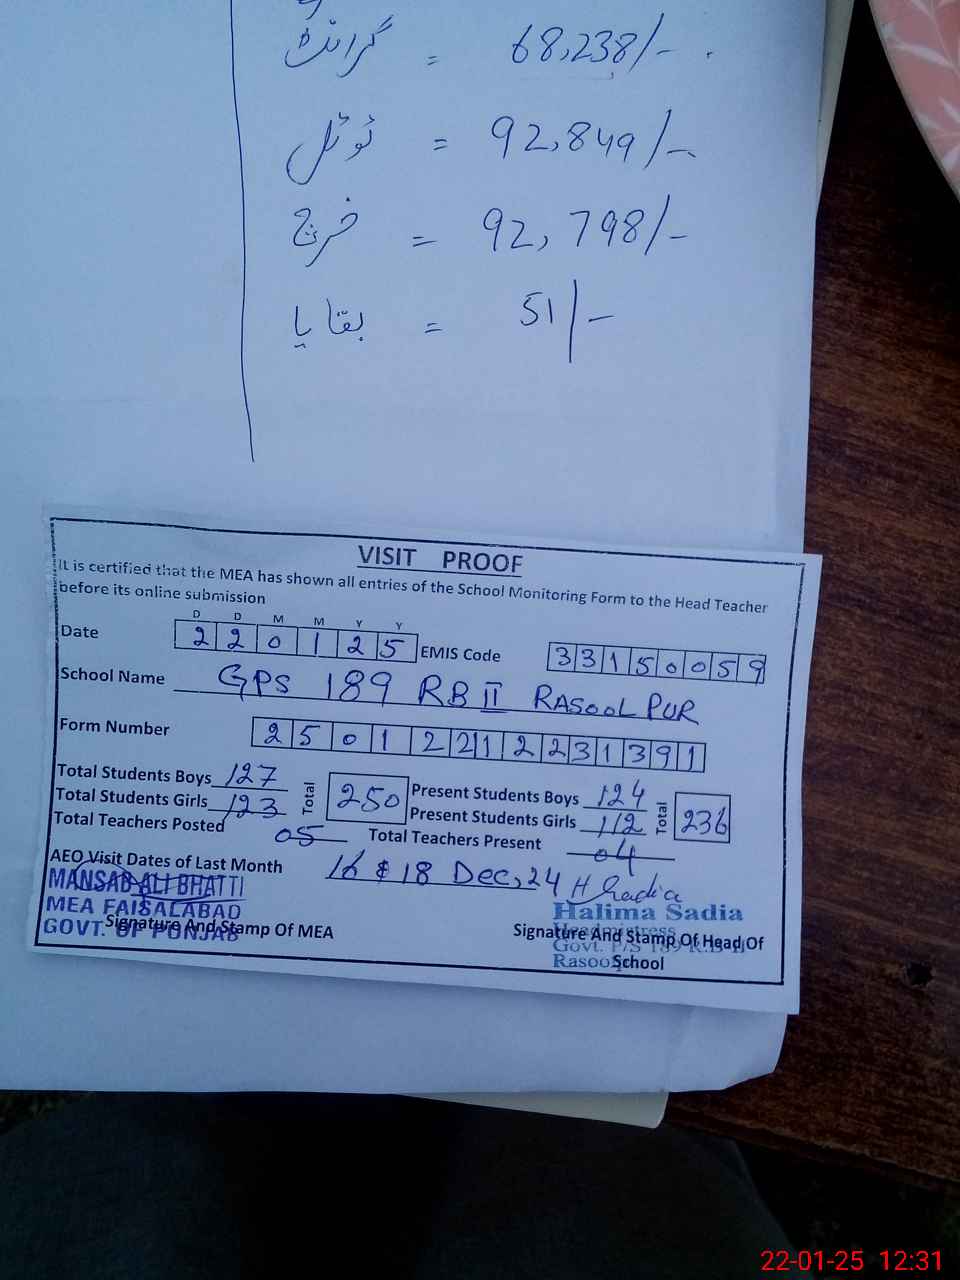 گرانٹ = 68,238/-
ٹوٹل = 92,849/-
خرچ = 92,798/-
بقایا = 51/-
VISIT PROOF
It is certified that the MEA has shown all entries of the School Monitoring Form to the Head Teacher
before its online submission
D D M M Y Y
Date 2 2 0 1 2 5 EMIS Code 3 3 1 5 0 0 5 9
School Name GPS 189 RB II RASOOL PUR
Form Number 2 5 0 1 2 2 1 2 2 3 1 3 9 1
Total Students Boys 127 Total 250 Present Students Boys 124 Total 236
Total Students Girls 123 Present Students Girls 112
Total Teachers Posted 05 Total Teachers Present 04
AEO Visit Dates of Last Month 16 & 18 Dec, 24 H Sadia
MANSAB ALI BHATTI
MEA FAISALABAD
GOVT. OF PUNJAB
Signature And Stamp Of MEA
Halima Sadia
Headmistress
Govt. P/S 189 R.B II
Rasool
Signature And Stamp Of Head Of
School
22-01-25 12:31